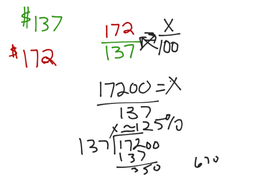 $137
$172
172/137 X/100
17200/137 = X
X ≈ 125%
137 17200
137
350
670